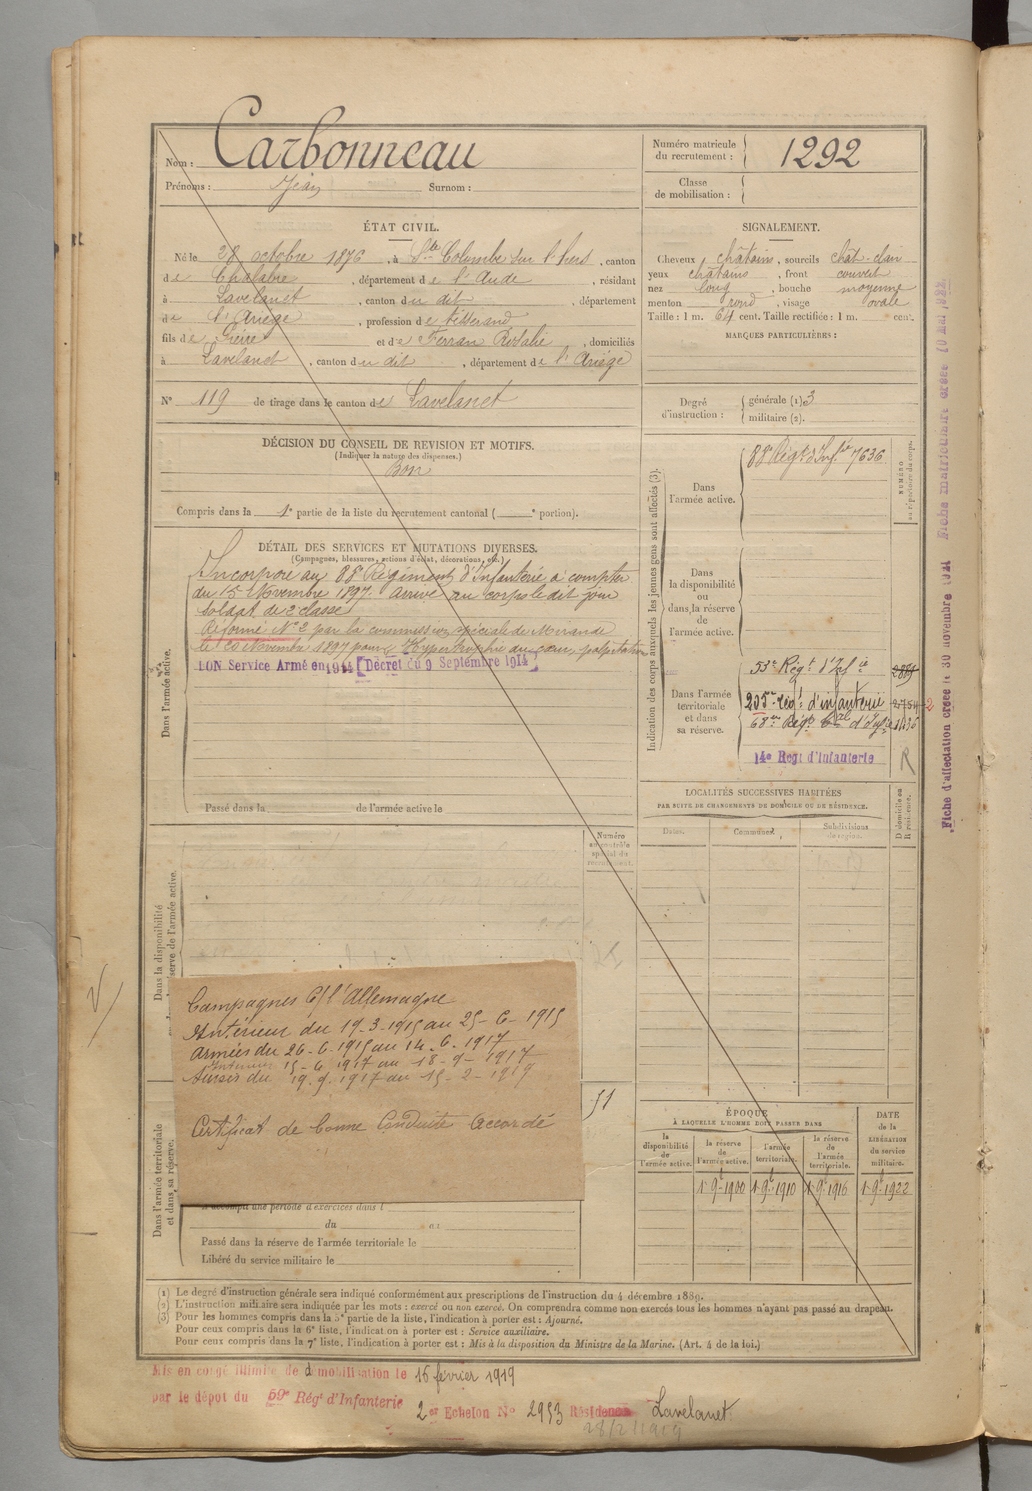 Nom : Carbonneau
Prénoms : Jean Surnom :
Numéro matricule du recrutement : 1292
Classe de mobilisation :
ÉTAT CIVIL.
Né le 28 octobre 1876, à Ste Colombe sur l'hers, canton
de Chalabre, département de l'Aude, résidant
à Lavelanet, canton du dit, département
de l'Ariège, profession de tisserand
fils de Pierre et de Ferran Rosalie, domiciliés
à Lavelanet, canton du dit, département de l'Ariège
N° 119 de tirage dans le canton de Lavelanet
SIGNALEMENT.
Cheveux châtains, sourcils chât-clair
yeux châtains, front couvert
nez long, bouche moyenne
menton rond, visage ovale
Taille : 1 m. 64 cent. Taille rectifiée : 1 m. cent.
MARQUES PARTICULIÈRES :
Degré d'instruction : générale (1) 3
militaire (2).
DÉCISION DU CONSEIL DE REVISION ET MOTIFS.
(Indiquer la nature des dispenses.)
Bon
Compris dans la 1e partie de la liste du recrutement cantonal ( e portion).
DÉTAIL DES SERVICES ET MUTATIONS DIVERSES.
(Campagnes, blessures, actions d'éclat, décorations, etc.)
Incorporé au 88e Régiment d'Infanterie à compter
du 15 Novembre 1897. Arrivé au corps le dit jour
soldat de 2e classe
Réformé N°2 par la commission spéciale de Mirande
le 20 Novembre 1897 pour Hypertrophie du cœur, palpitation
BON Service Armé en 1914 [Décret du 9 Septembre 1914]
Dans l'armée active.
Passé dans la de l'armée active le
Indication des corps auxquels les jeunes gens sont affectés (3).
NUMÉRO au répertoire du corps.
Dans l'armée active.
88e Régt d'Infie 7636
Dans la disponibilité ou dans la réserve de l'armée active.
Dans l'armée territoriale et dans sa réserve.
53e Régt d'Infie
205e régt d'infanterie
14e Regt d'Infanterie R
LOCALITÉS SUCCESSIVES HABITÉES
PAR SUITE DE CHANGEMENTS DE DOMICILE OU DE RÉSIDENCE.
Dates. Communes. Subdivisions de région. D domicile ou R résidence.
Numéro au contrôle spécial du recrutement.
Dans la disponibilité
réserve de l'armée active.
Campagnes C/ l'Allemagne
Intérieur du 19-3-1915 au 25-6-1915
Armées du 26-6-1915 au 14.6.1917
Intérieur 15-6 1917 au 18-9-1917
Armées du 19.9.1917 au 15-2-1919
Certificat de bonne Conduite Accordé
51
Dans l'armée territoriale et dans sa réserve.
A accompli une période d'exercices dans l
du au
Passé dans la réserve de l'armée territoriale le
Libéré du service militaire le
ÉPOQUE
À LAQUELLE L'HOMME DOIT PASSER DANS
la disponibilité de l'armée active. la réserve de l'armée active. l'armée territoriale. la réserve de l'armée territoriale.
DATE de la LIBÉRATION du service militaire.
1er 9bre 1900 1er 9bre 1910 1er 9bre 1916 1er 9bre 1922
(1) Le degré d'instruction générale sera indiqué conformément aux prescriptions de l'instruction du 4 décembre 1889.
(2) L'instruction militaire sera indiquée par les mots : exercé ou non exercé. On comprendra comme non exercés tous les hommes n'ayant pas passé au drapeau.
(3) Pour les hommes compris dans la 5e partie de la liste, l'indication à porter est : Ajourné.
Pour ceux compris dans la 6e liste, l'indication à porter est : Service auxiliaire.
Pour ceux compris dans la 7e liste, l'indication à porter est : Mis à la disposition du Ministre de la Marine. (Art. 4 de la loi.)
Mis en congé illimité de démobilisation le 15 février 1919
par le dépot du 59e Régt d'Infanterie
2er Echelon N° 2953 Résidence Lavelanet
28/2/1919
Fiche d'affectation créée le 30 novembre 1921 Fiche matriculaire créée 10 Mai 1922